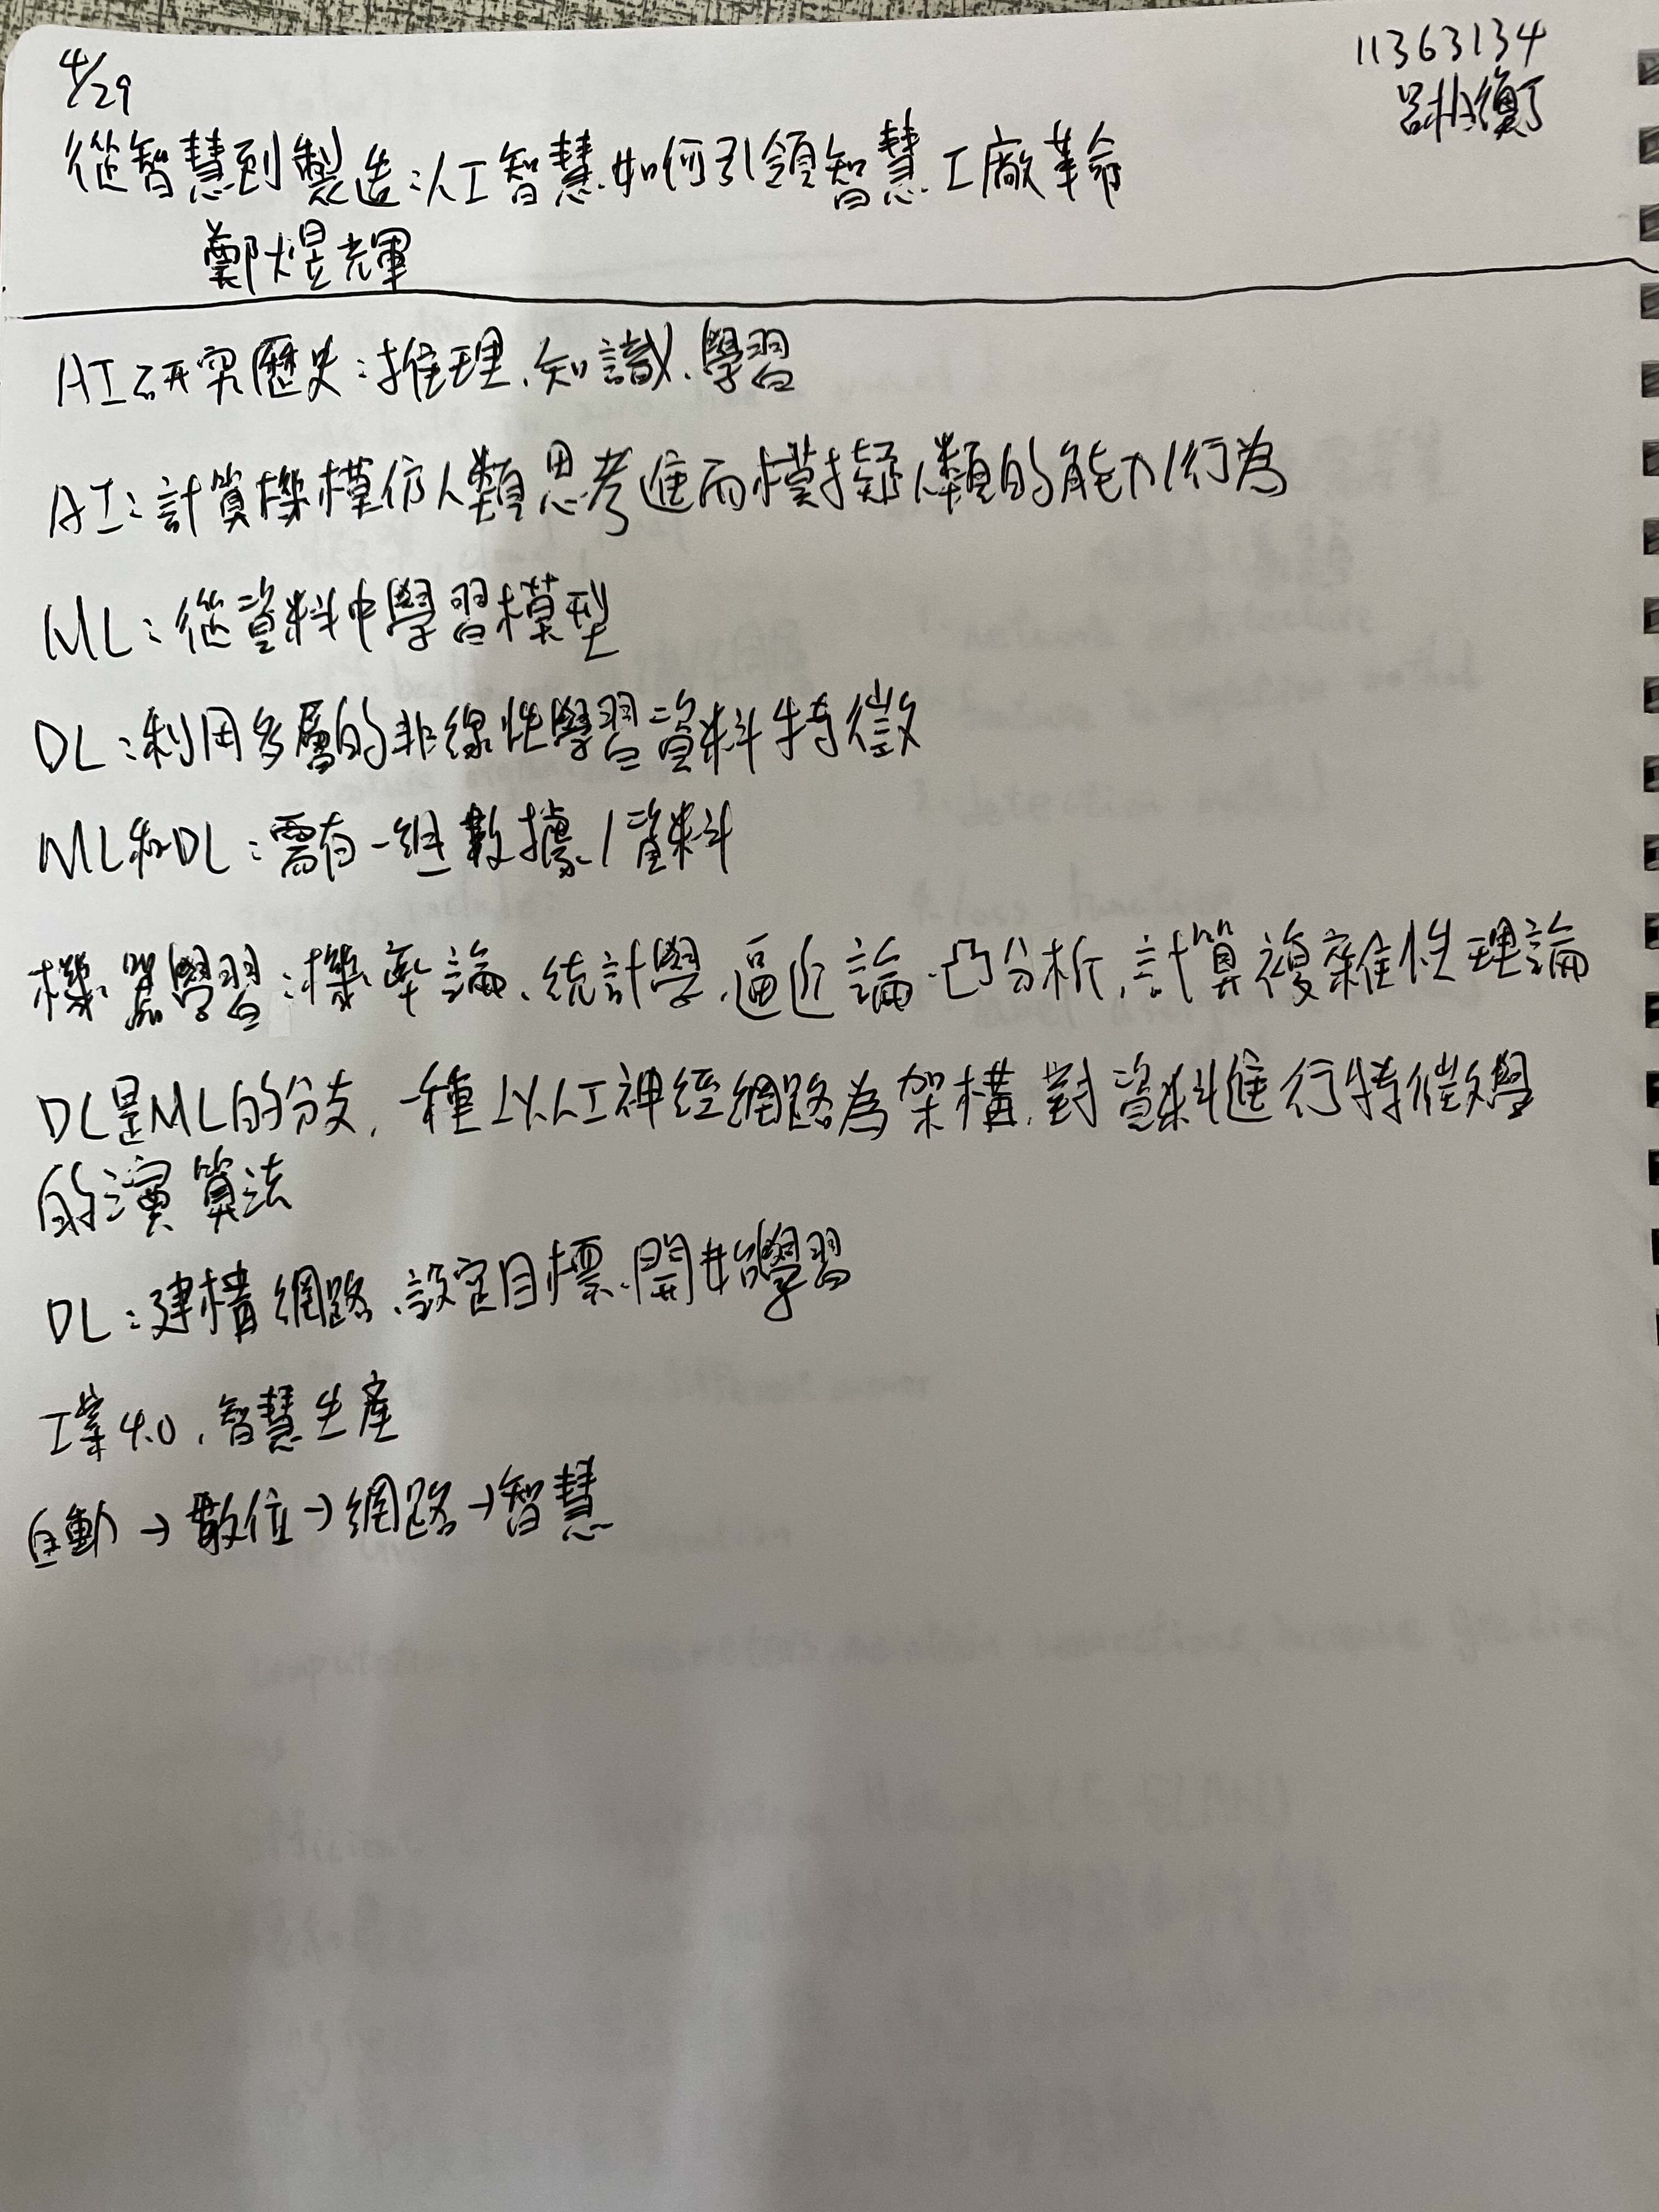 4/29
11363134
呂 衡
從智慧到製造:人工智慧如何引領智慧工廠革命
鄭煜輝
AI研究歷史:推理、知識、學習
AI:計算機模仿人類思考進而模擬人類的能力/行為
ML:從資料中學習模型
DL:利用多層的非線性學習資料特徵
ML和DL:需有一組數據/資料
機器學習:機率論、統計學、逼近論、凸分析、計算複雜性理論
DL是ML的分支,一種以人工神經網路為架構,對資料進行特徵學
的演算法
DL:建構網路、設定目標、開始學習
工業4.0、智慧生產
自動→數位→網路→智慧